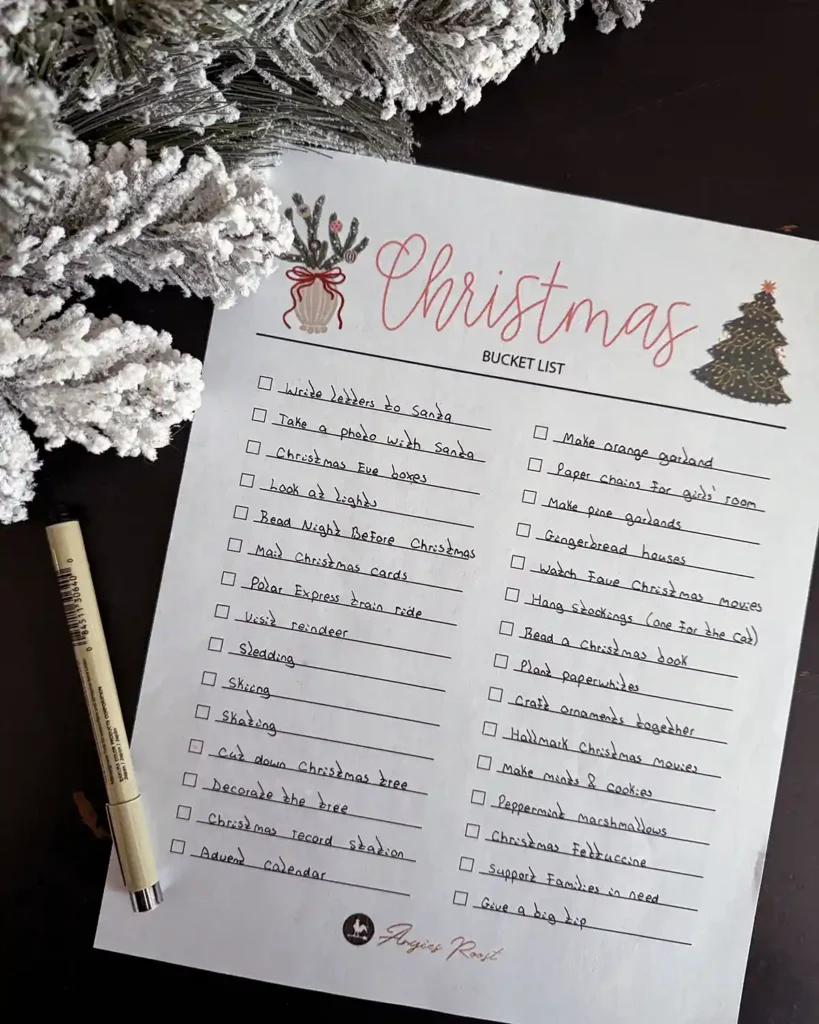 Christmas
BUCKET LIST
Write letters to Santa
Take a photo with Santa
Christmas Eve boxes
Look at lights
Read Night Before Christmas
Mail Christmas cards
Polar Express train ride
Visit reindeer
Sledding
Skiing
Skating
Cut down Christmas tree
Decorate the tree
Christmas record station
Advent calendar
Make orange garland
Paper chains for girls' room
Make pine garlands
Gingerbread houses
Watch Fave Christmas movies
Hang stockings (one for the cat)
Read a Christmas book
Plant paperwhites
Craft ornaments together
Hallmark Christmas movies
Make mints & cookies
Peppermint marshmallows
Christmas Fettuccine
Support Families in need
Give a big tip
Angies Roost